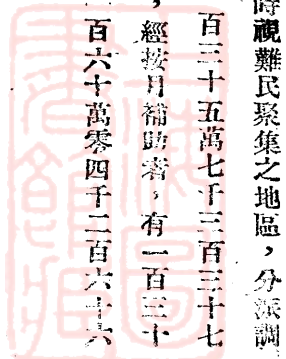 時視難民聚集之地區，分派調
百三十五萬七千三百三十七
，經按月補助者，有一百三十
百六十萬零四千二百六十六